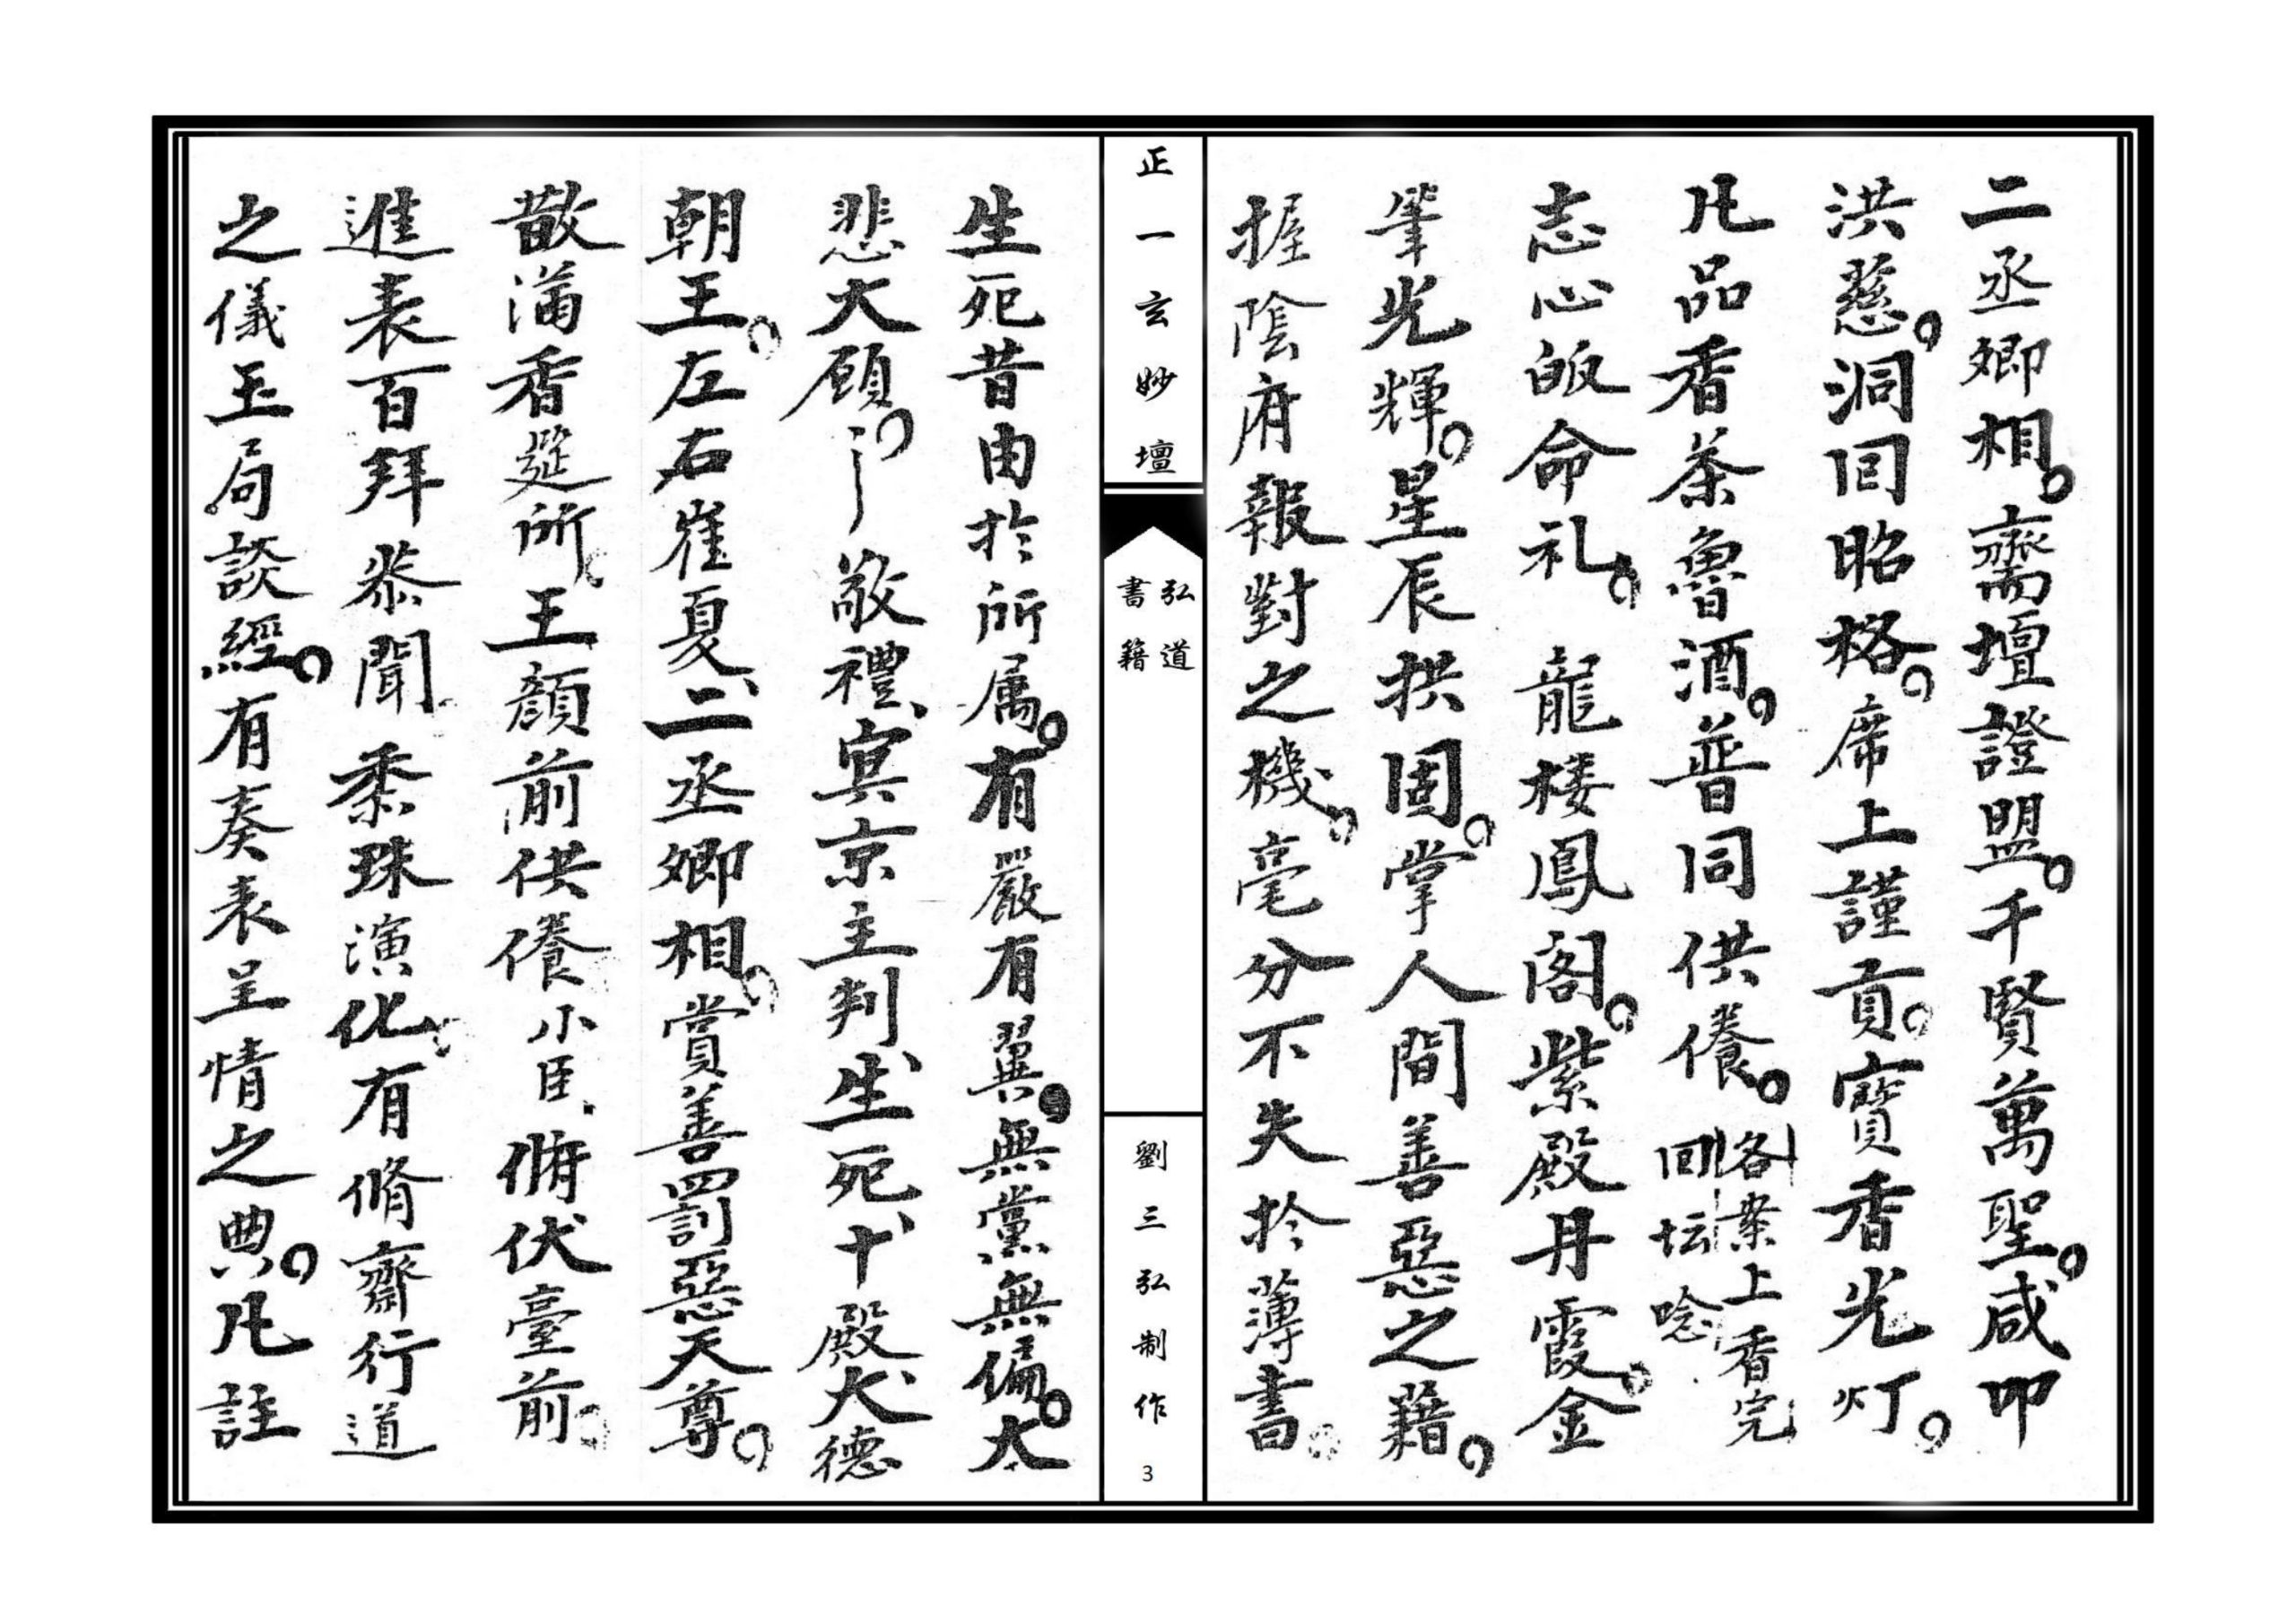 二丞卿相。齋壇證盟。千賢萬聖。咸叩
洪慈。洞回昭格。席上謹貢。寶香光灯。
凡品香茶魯酒。普同供養。各案上香完
回坛唸
志心皈命礼。龍楼鳳閣。紫殿丹霞。金
筆光輝。星辰拱固。掌人間善惡之籍。
握陰府報對之機。毫分不失於薄書。
正一玄妙壇
弘道
書籍
劉三弘制作
3
生死昔由於所属。有嚴有翼。無黨無偏。大
悲大願。敬禮、冥京主判、生死、十殿大德
朝王。左右崔夏、二丞卿相。賞善罰惡天尊。
散滿香筵所。王顏前供養小臣、俯伏臺前。
進表百拜恭聞黍珠演化。有脩齋行道
之儀玉局談經。有奏表呈情之典。凡註